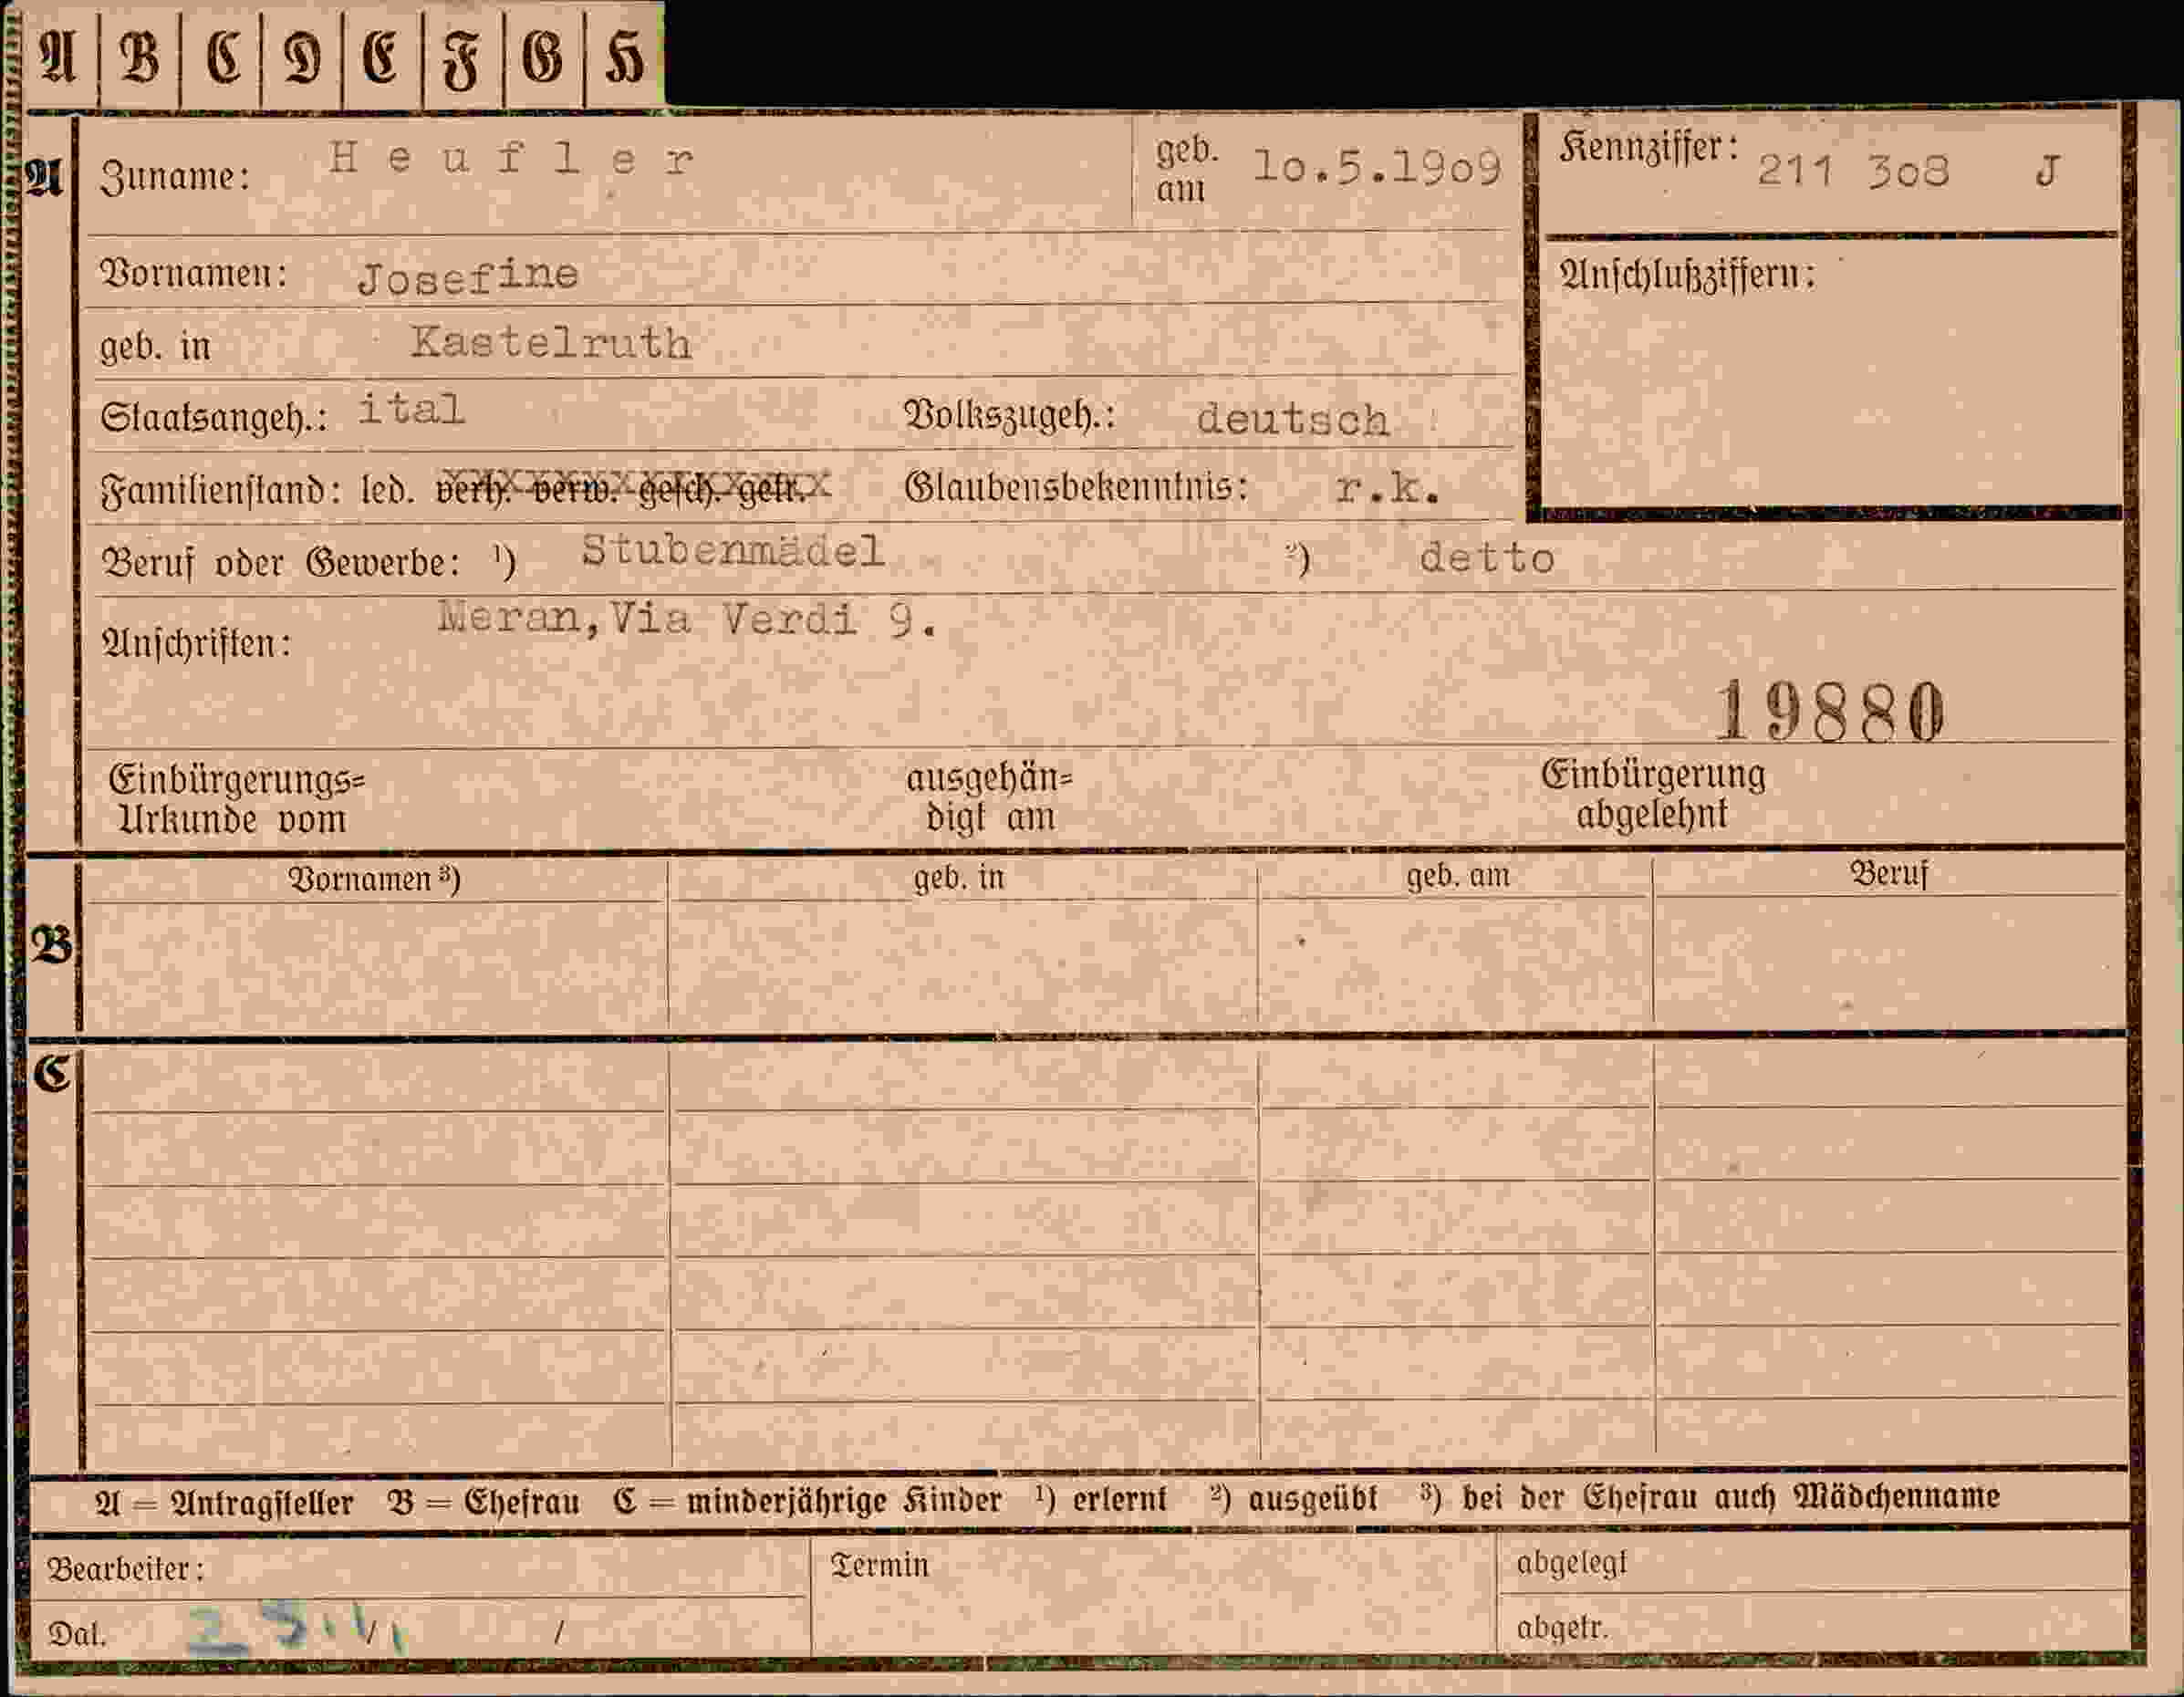 A B C D E F G H
A Zuname: Heufler geb. am 10.5.1909 Kennziffer: 211 308 J
Vornamen: Josefine Anschlußziffern:
geb. in Kastelruth
Staatsangeh.: ital Volkszugeh.: deutsch
Familienstand: led. verh. verw. gesch. getr. Glaubensbekenntnis: r.k.
Beruf oder Gewerbe: ¹) Stubenmädel ²) detto
Anschriften: Meran, Via Verdi 9.
19880
Einbürgerungs= ausgehän= Einbürgerung
Urkunde vom digt am abgelehnt
Vornamen ³) geb. in geb. am Beruf
B
C
A = Antragsteller B = Ehefrau C = minderjährige Kinder ¹) erlernt ²) ausgeübt ³) bei der Ehefrau auch Mädchenname
Bearbeiter: Termin abgelegt
Dat. abgetr.